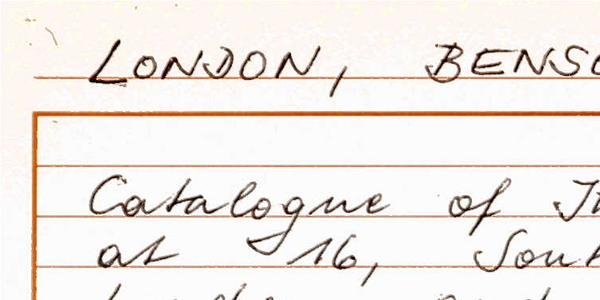 LONDON, BENSO
Catalogue of
at 16, Sout